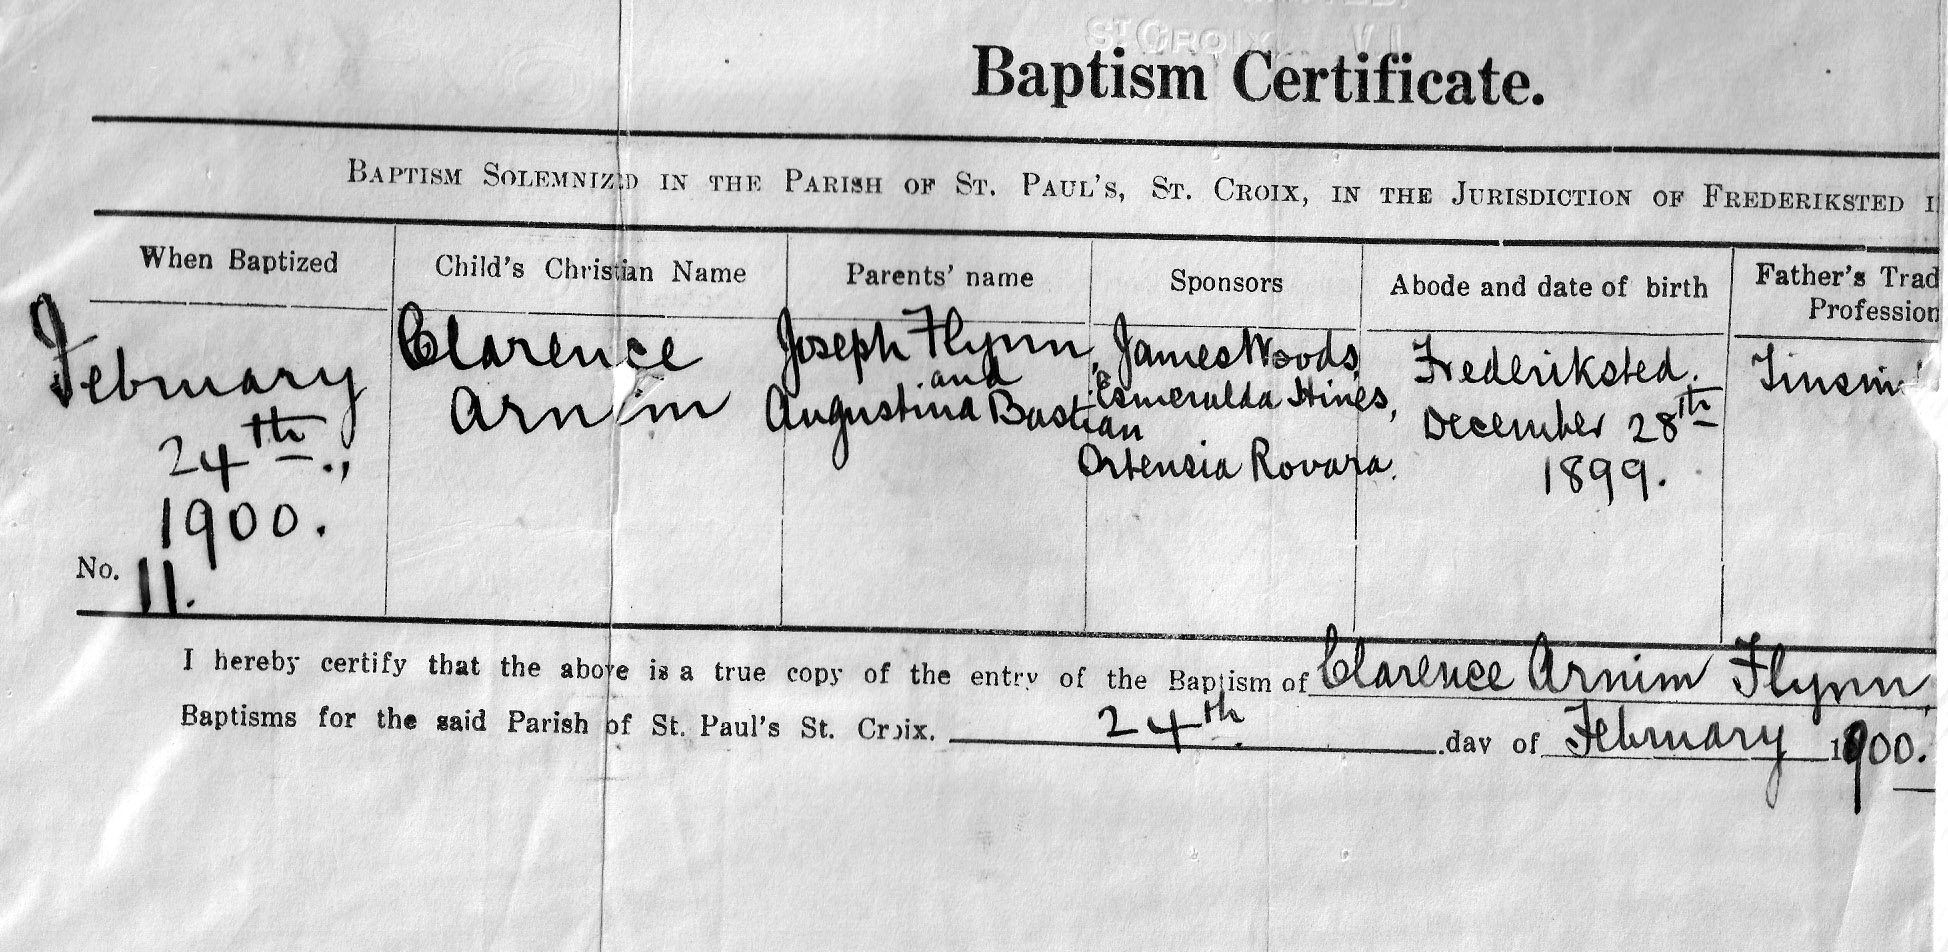 ST CROIX V.I.
Baptism Certificate.
BAPTISM SOLEMNIZED IN THE PARISH OF ST. PAUL'S, ST. CROIX, IN THE JURISDICTION OF FREDERIKSTED
When Baptized
Child's Christian Name
Parents' name
Sponsors
Abode and date of birth
Father's Trad
Profession
February
24th.,
1900.
Clarence
Arnim
Joseph Flynn,
and
Augustina Bastian
James Woods,
Esmeralda Hines,
Ortensia Rovara.
Frederiksted.
December 28th
1899.
Tinsm
No. 11.
I hereby certify that the above is a true copy of the entry of the Baptism of Clarence Arnim Flynn,
Baptisms for the said Parish of St. Paul's St. Croix. 24th. day of February 1900.